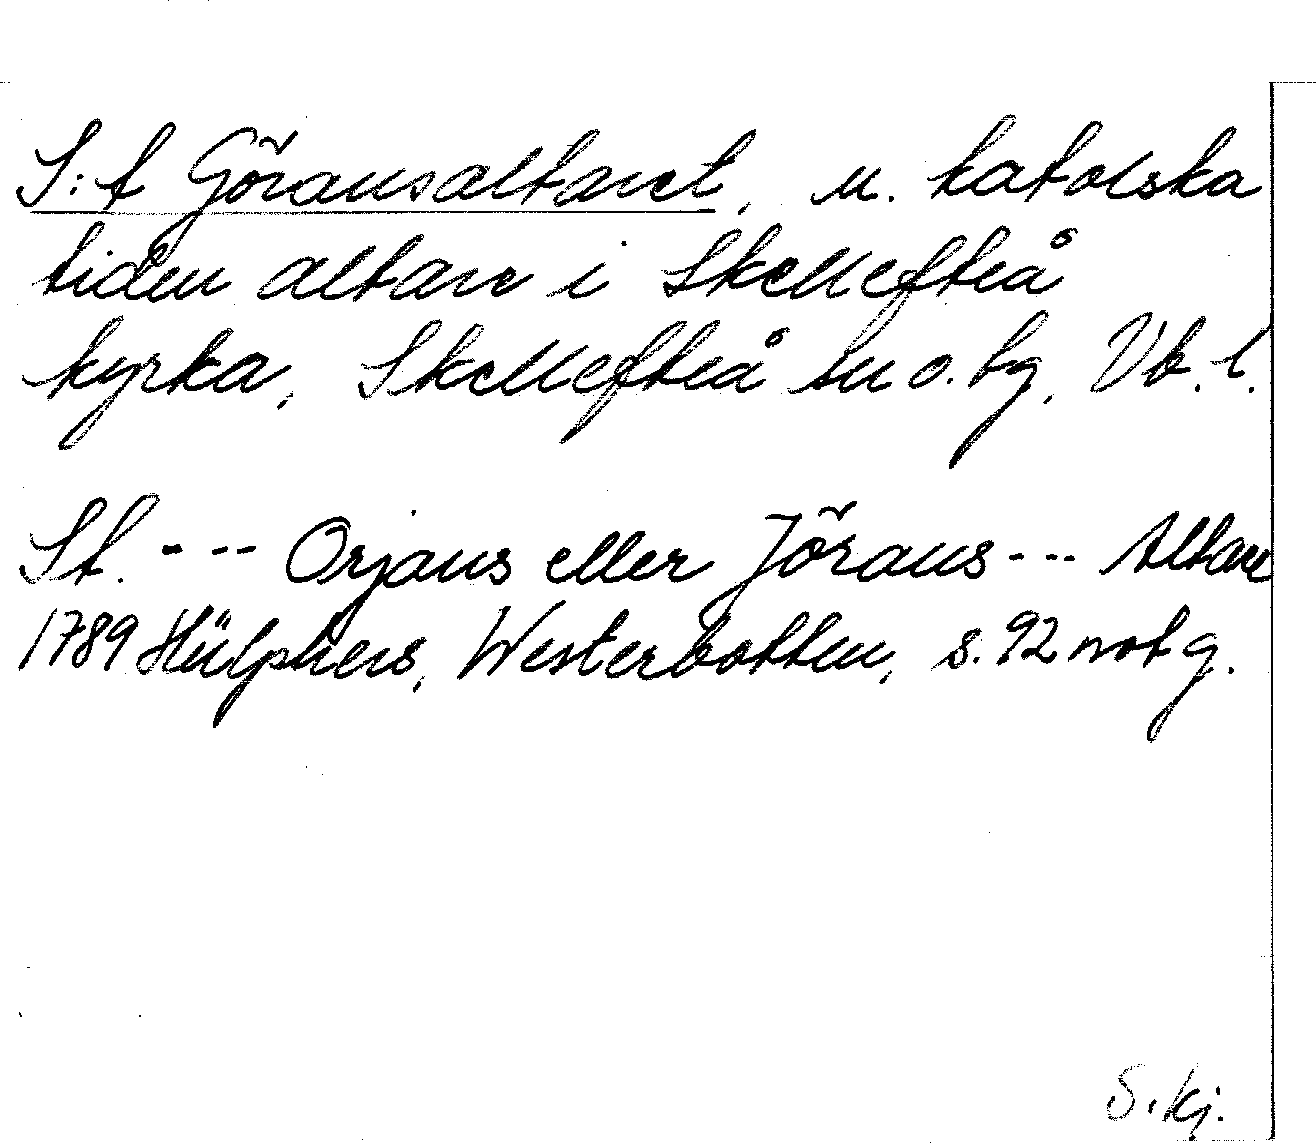 S:t Göransaltaret, u. katolska
tiden altare i Skellefteå
kyrka, Skellefteå sn o. tg, Vb. l.
St. --- Orjans eller Jörans --- Altare
1789 Hülphers, Westerbotten, s. 92 not g.
S. kj.